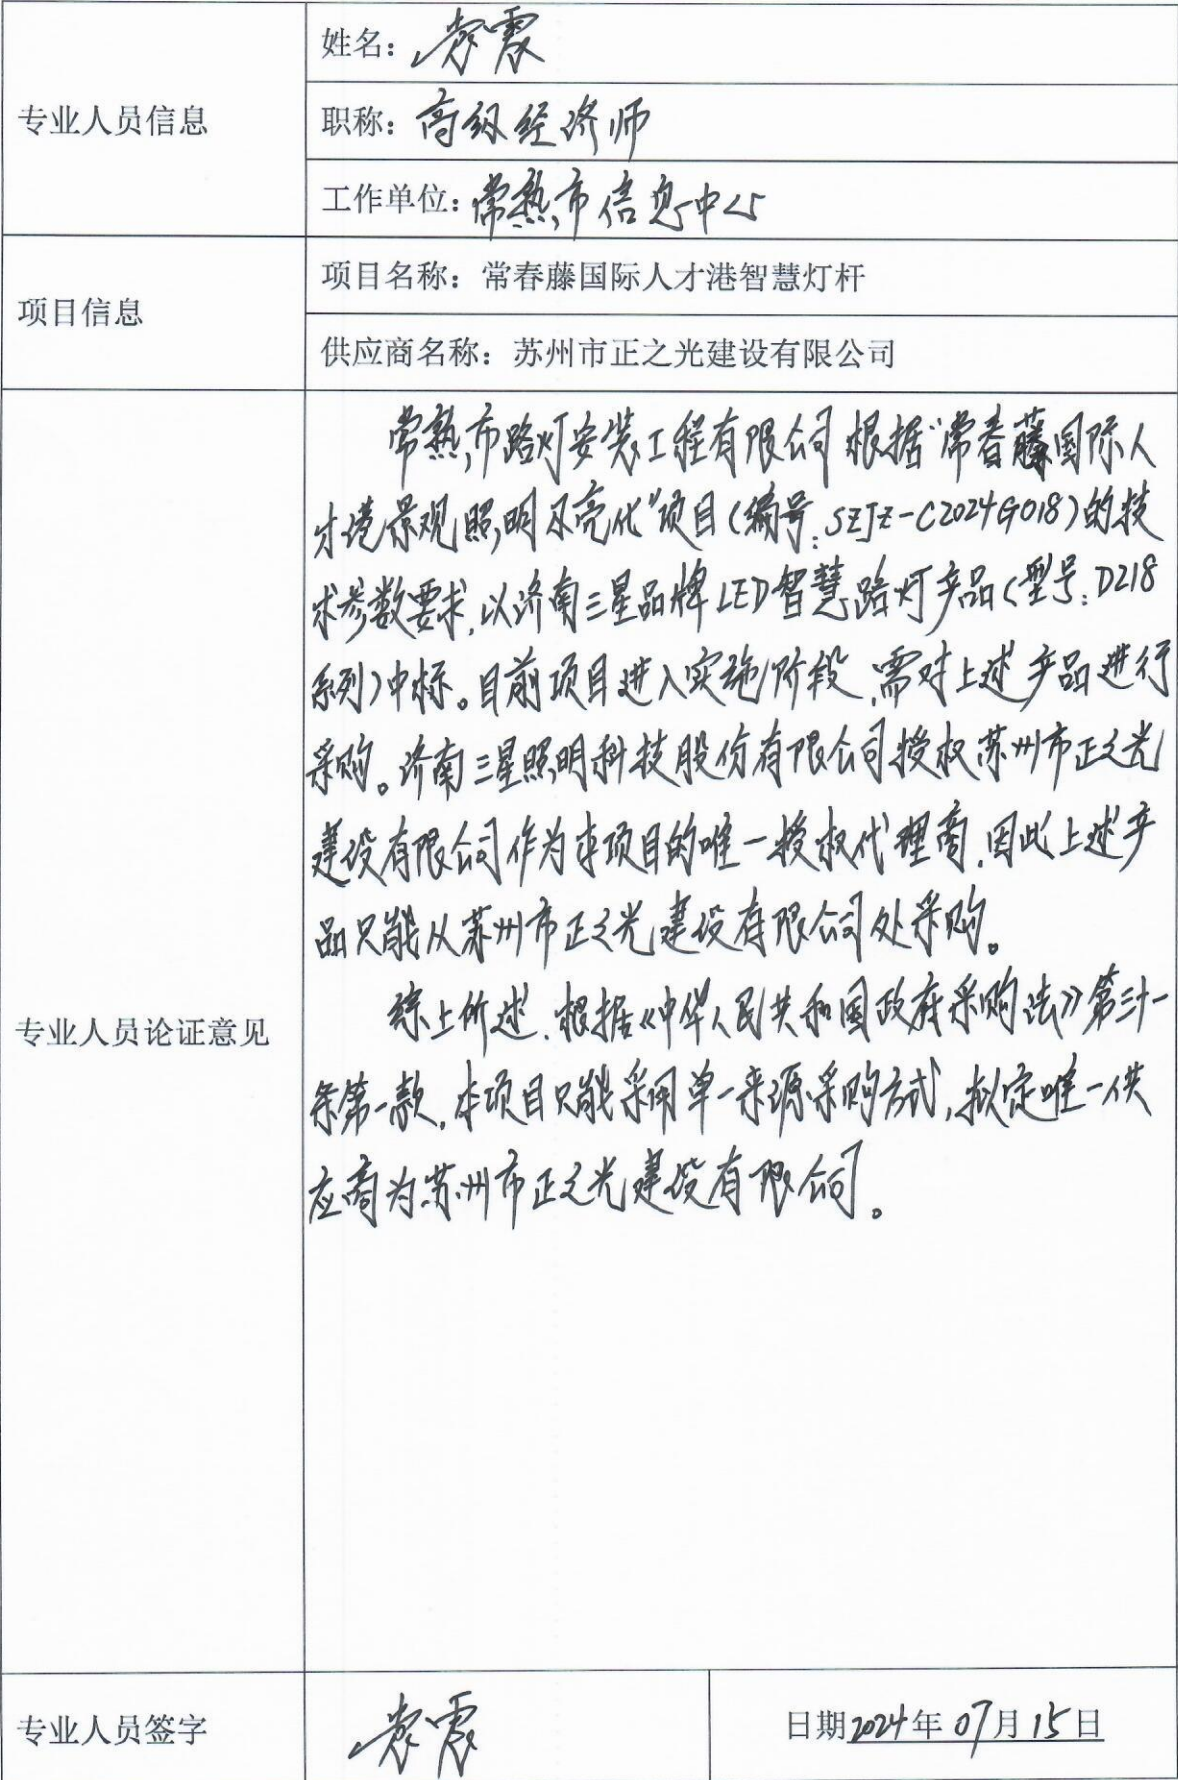 专业人员信息
姓名：袁震
职称：高级经济师
工作单位：常熟市信息中心
项目信息
项目名称：常春藤国际人才港智慧灯杆
供应商名称：苏州市正之光建设有限公司
专业人员论证意见
常熟市路灯安装工程有限公司根据“常春藤国际人
才港景观照明及亮化”项目（编号：SZJZ-C2024G018）的技
术参数要求，以济南三星品牌LED智慧路灯产品（型号：DZ18
系列）中标。目前项目进入实施阶段，需对上述产品进行
采购。济南三星照明科技股份有限公司授权苏州市正之光
建设有限公司作为本项目的唯一授权代理商，因此上述产
品只能从苏州市正之光建设有限公司处采购。
综上所述，根据《中华人民共和国政府采购法》第三十一
条第一款，本项目只能采用单一来源采购方式，拟定唯一供
应商为苏州市正之光建设有限公司。
专业人员签字
袁震
日期2024年07月15日